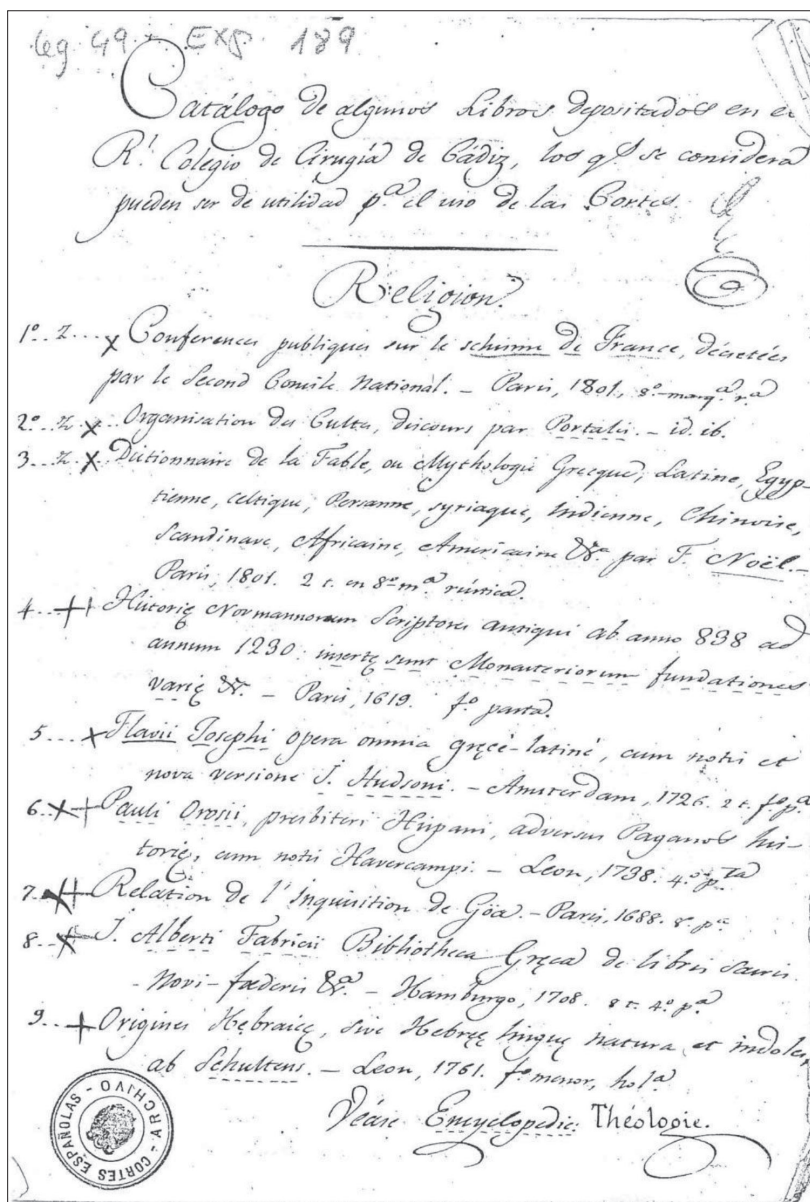 Leg 49 - Exp. 189
Catálogo de algunos Libros depositados en el
Rl. Colegio de Cirugía de Cádiz, los qs. se considera
pueden ser de utilidad pa. el uso de las Cortes.
Religion.
1º.. Z... x Conferences publiques sur le schisme de France, décretées
par le Second Concile National. – Paris, 1801, 8º marqa. ra.
2º.. Z. x Organisation des Cultes, discours par Portalis. – id. ib.
3.. Z. x Dictionnaire de la Fable, ou Mythologie Grecque, Latine, Egyp-
tienne, Celtique, Persanne, Syriaque, Indienne, Chinoise,
Scandinave, Africaine, Americaine &a. par F. Noël. –
Paris, 1801. 2 t. en 8º ma. rústica.
4.. ++ Historię Normannorum Scriptores antiqui ab anno 838 ad
annum 1230: insertę sunt Monasteriorum fundationes
varię &. – Paris, 1619. fº pasta.
5... x Flavii Josephi opera omnia gręcè-latinè, cum notis et
nova versione J. Hudsoni. – Amsterdam, 1726. 2 t. fº pa.
6.. x+ Pauli Orosii, presbiteri Hispani, adversus Paganos his-
torię, cum notis Havercampi. – Leon, 1738. 4º pta.
7.. x+ Relation de l'Inquisition de Göa. – Paris, 1688. 8º pa.
8.. x J. Alberti Fabricii Bibliotheca Gręca de libris sacris
Novi-fœderis &a. – Hamburgo, 1708. 8 t. 4º pa.
9.. + Origines Hębraicę, sive Hebręę linguę natura et indoles,
ab Schultens. – Leon, 1761. fº menor, hola.
Véase Encyclopedie: Théologie.
ARCHIVO - CORTES ESPAÑOLAS -